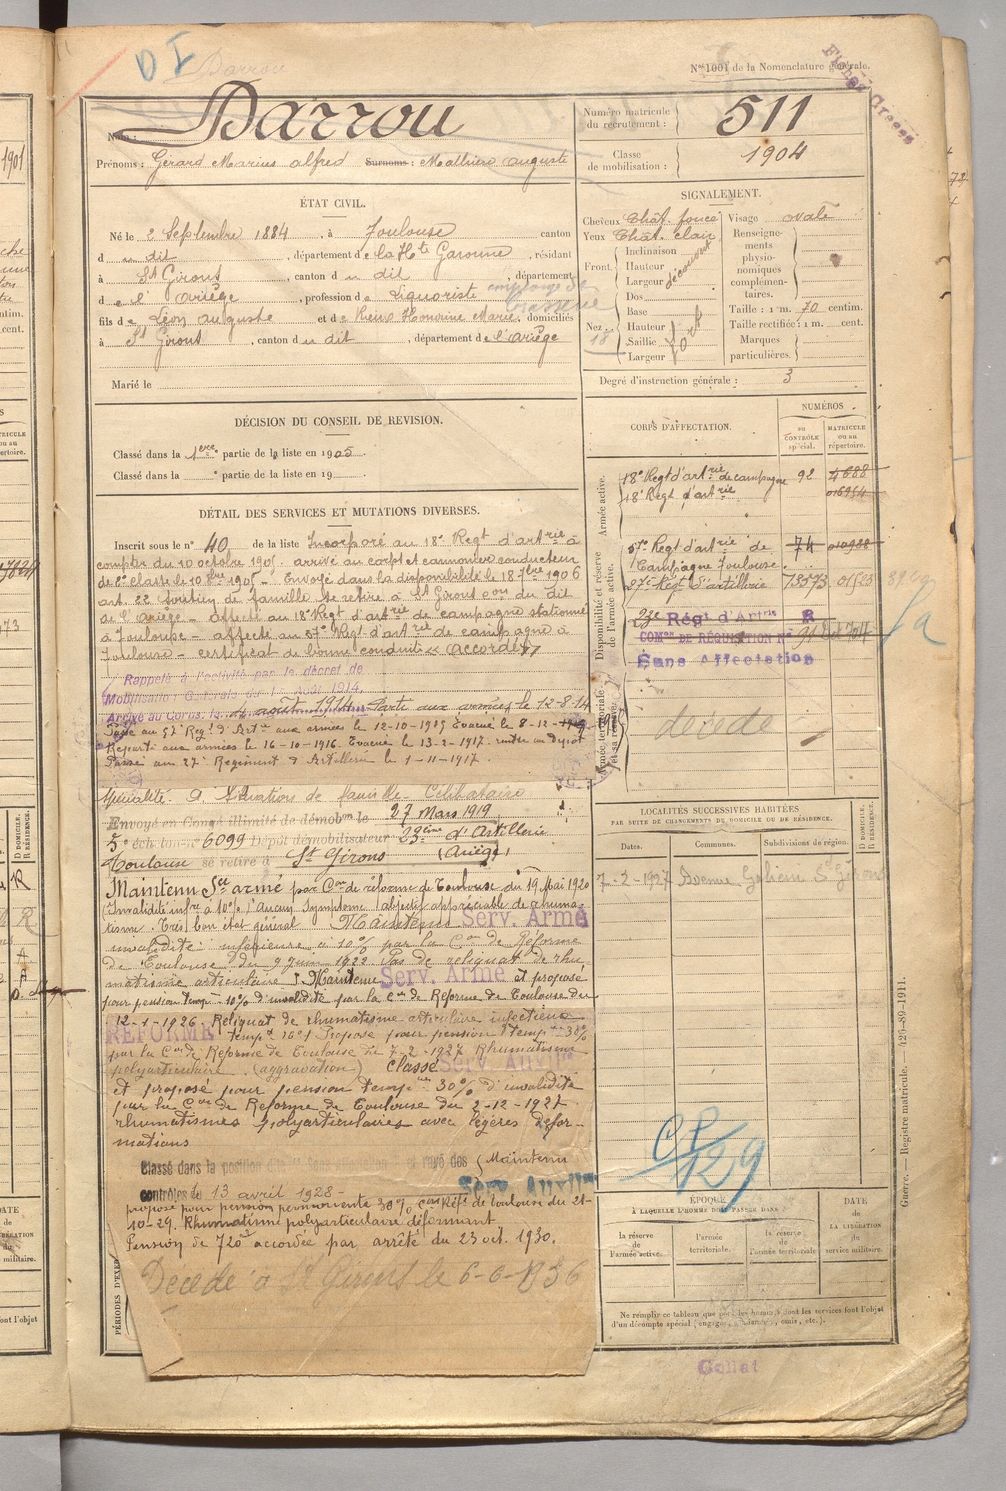 D I
Darrou
N° 1001 de la Nomenclature générale.
Nom : Darrou
Prénoms : Gérard Marius Alfred Surnoms : Mathieu Auguste
Numéro matricule
du recrutement : 511
Classe
de mobilisation : 1904
ÉTAT CIVIL.
Né le 2 Septembre 1884, à Toulouse canton
d u dit, département de la Hte Garonne, résidant
à St Girons, canton d u dit, département
d e l'Ariège, profession de Liquoriste
fils de Léon Auguste et de Honorine Marie, domiciliés
à St Girons, canton du dit, département de l'Ariège
Marié le
SIGNALEMENT.
Cheveux Chât. foncé
Yeux Chât. clair
Front. Inclinaison
Hauteur
Largeur découvert
Nez. Dos
Base
Hauteur
Saillie fort
Largeur
18
Visage ovale
Renseigne-
ments
physio-
nomiques
complémen-
taires.
Taille : 1 m. 70 centim.
Taille rectifiée : 1 m. cent.
Marques
particulières.
Degré d'instruction générale : 3
DÉCISION DU CONSEIL DE REVISION.
Classé dans la 1ère partie de la liste en 1905
Classé dans la partie de la liste en 19
DÉTAIL DES SERVICES ET MUTATIONS DIVERSES.
Inscrit sous le n° 40 de la liste Incorporé au 18e Regt d'artrie à
compter du 10 octobre 1905. arrivé au corps et canonnier conducteur
de 2e classe le 10 8bre 1905 - Envoyé dans la disponibilité le 18 7bre 1906
art. 22 Soutien de famille Se retire à St Girons con du dit
de l'ariège - affecté au 18e Regt d'artrie de campagne stationné
à Toulouse - affecté au 57e Regt d'artrie de campagne à
Toulouse - certificat de bonne conduite « accordé »
Rappelé à l'activité par le décret de
Mobilisation Générale du 1er Août 1914.
Arrivé au Corps le 4 août 1914 - Parti aux armées le 12-8-14
Passé au 57e Regt d'Artie aux armées le 12-10-1915 Evacué le 8-12-
Reparti aux armées le 16-10-1916. Evacué le 13-2-1917. rentré au dépôt
Passé au 27e Régiment d'Artillerie le 1-11-1917.
Spécialité. Situation de famille - Célibataire
Envoyé en Congé illimité de démobon le 27 Mars 1919
5e échelon n° 6099 Dépôt démobilisateur 23ème d'Artillerie
Toulouse se retire à St Girons (Ariège)
Maintenu Sce armé par Con de réforme de Toulouse du 19 Mai 1920
Invalidité infre à 10% (Aucun Symptome objectif appréciable de rhuma-
tisme. Très bon état général Maintenu Serv. Armé
invalidité inférieure à 10% par la Con de Réforme
de Toulouse du 9 Juin 1922 Pas de reliquat de rhu-
matisme articulaire. Maintenu Serv. Armé et proposé
pour pension temp. - 10% d'invalidité par la Con de Réforme de Toulouse du
12-1-1926. Reliquat de rhumatisme articulaire infectieux
REFORME Proposé pour pension temp. 30%
par la Con de Réforme de Toulouse du 7-2-1927 Rhumatisme
polyarticulaire (aggravation) Classé Serv. Auxilre
et proposé pour pension temp. 30% d'invalidité
par la Con de Réforme de Toulouse du 2-12-1927.
rhumatismes polyarticulaires avec légères défor-
mations
Classé dans la position dite "Sans affectation" et rayé des Maintenu
contrôles le 13 avril 1928 - Serv. Auxilre
proposé pour pension permanente 30% Con Réf. de Toulouse du 21-
10-29. Rhumatisme polyarticulaire déformant
Pension de 720 accordée par arrêté du 23 oct. 1930.
Décédé à St Girons le 6-6-1936
CORPS D'AFFECTATION.
NUMÉROS
au
CONTRÔLE
spécial.
MATRICULE
ou au
répertoire.
Armée active.
18e Regt d'artrie de campagne 92 4688
18e Regt d'artrie 016954
Disponibilité et réserve
de l'armée active.
57e Regt d'artrie de 74 010988
Campagne Toulouse.
27e Regt d'artillerie
23e Régt d'Artrie
COMon DE RÉQUISITION N°
Sans Affectation
Armée territoriale
et sa réserve.
décédé
LOCALITÉS SUCCESSIVES HABITÉES
PAR SUITE DE CHANGEMENTS DE DOMICILE OU DE RÉSIDENCE.
Dates.
Communes.
Subdivisions de région.
D DOMICILE.
R RÉSIDENCE.
7-2-1927 Avenue Galieni St Girons
ÉPOQUE
À LAQUELLE L'HOMME DOIT PASSER DANS
la réserve
de
l'armée active.
l'armée
territoriale.
la réserve
de
l'armée territoriale
DATE
de
LA LIBÉRATION
du
service militaire.
Ne remplir ce tableau que pour les hommes dont les services font l'objet
d'un décompte spécial (engagés, condamnés, omis, etc.).
Guerre. — Registre matricule. 426-89-1911.